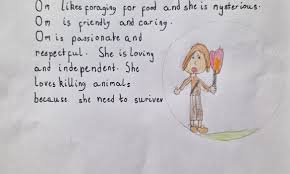 Om likes foraging for food and she is mysterious.
Om is friendly and caring.
Om is passionate and
respectful. She is loving
and independent. She
loves killing animals
because she need to suriver